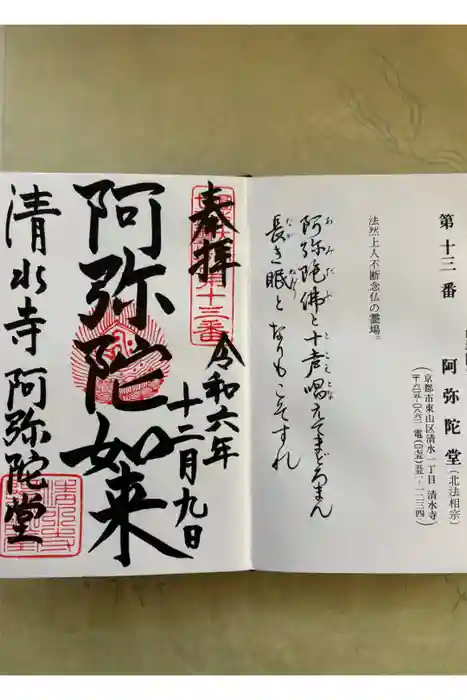 第十三番
阿弥陀堂(北法相宗)
(京都市東山区清水一丁目 清水寺
法然上人不断念仏の霊場。
阿弥陀佛と十声唱えてまどろまん
長き眠となりもこそすれ
奉拝
第十三番
令和六年
十二月九日
阿弥陀如来
清水寺 阿弥陀堂